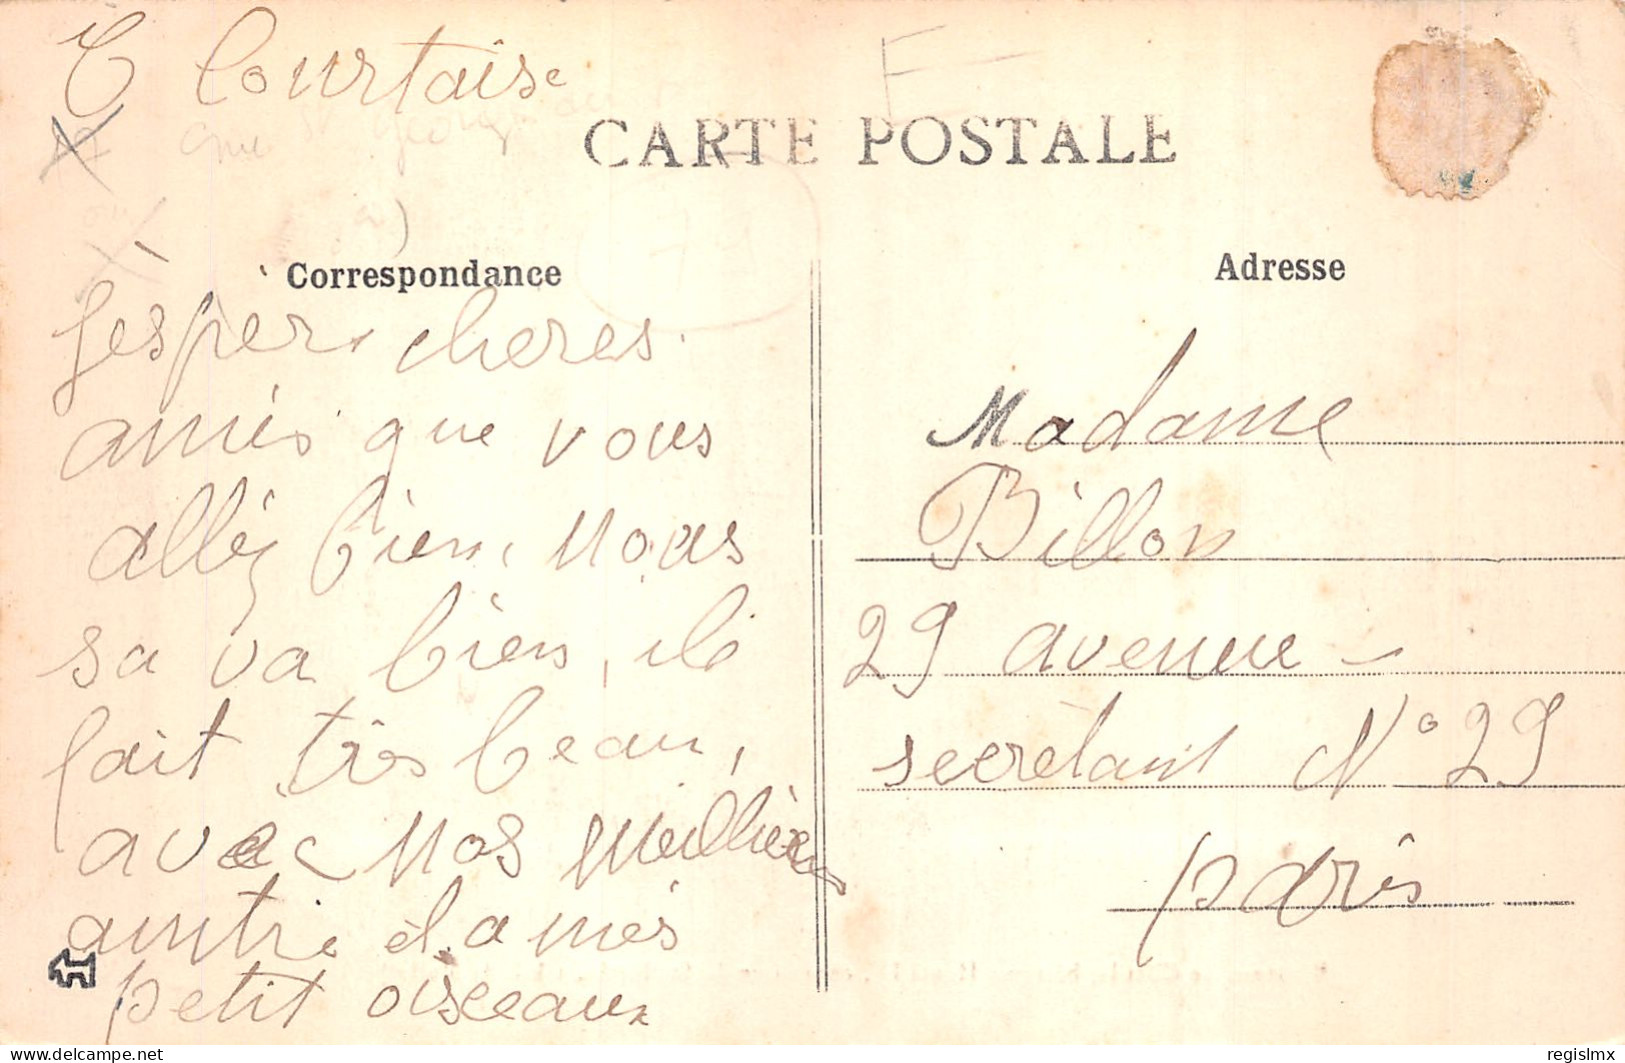 C Courtaise
CARTE POSTALE
Correspondance
Adresse
Jesper cheres
amies que vous
alléz bien, Nous
sa va bien, il
fait très beau,
avec Nos meillieurs
amitié
petit oiseaux
Madame
Billon
29 avenue
secretant N° 29
paris
regislmx
delcampe.net